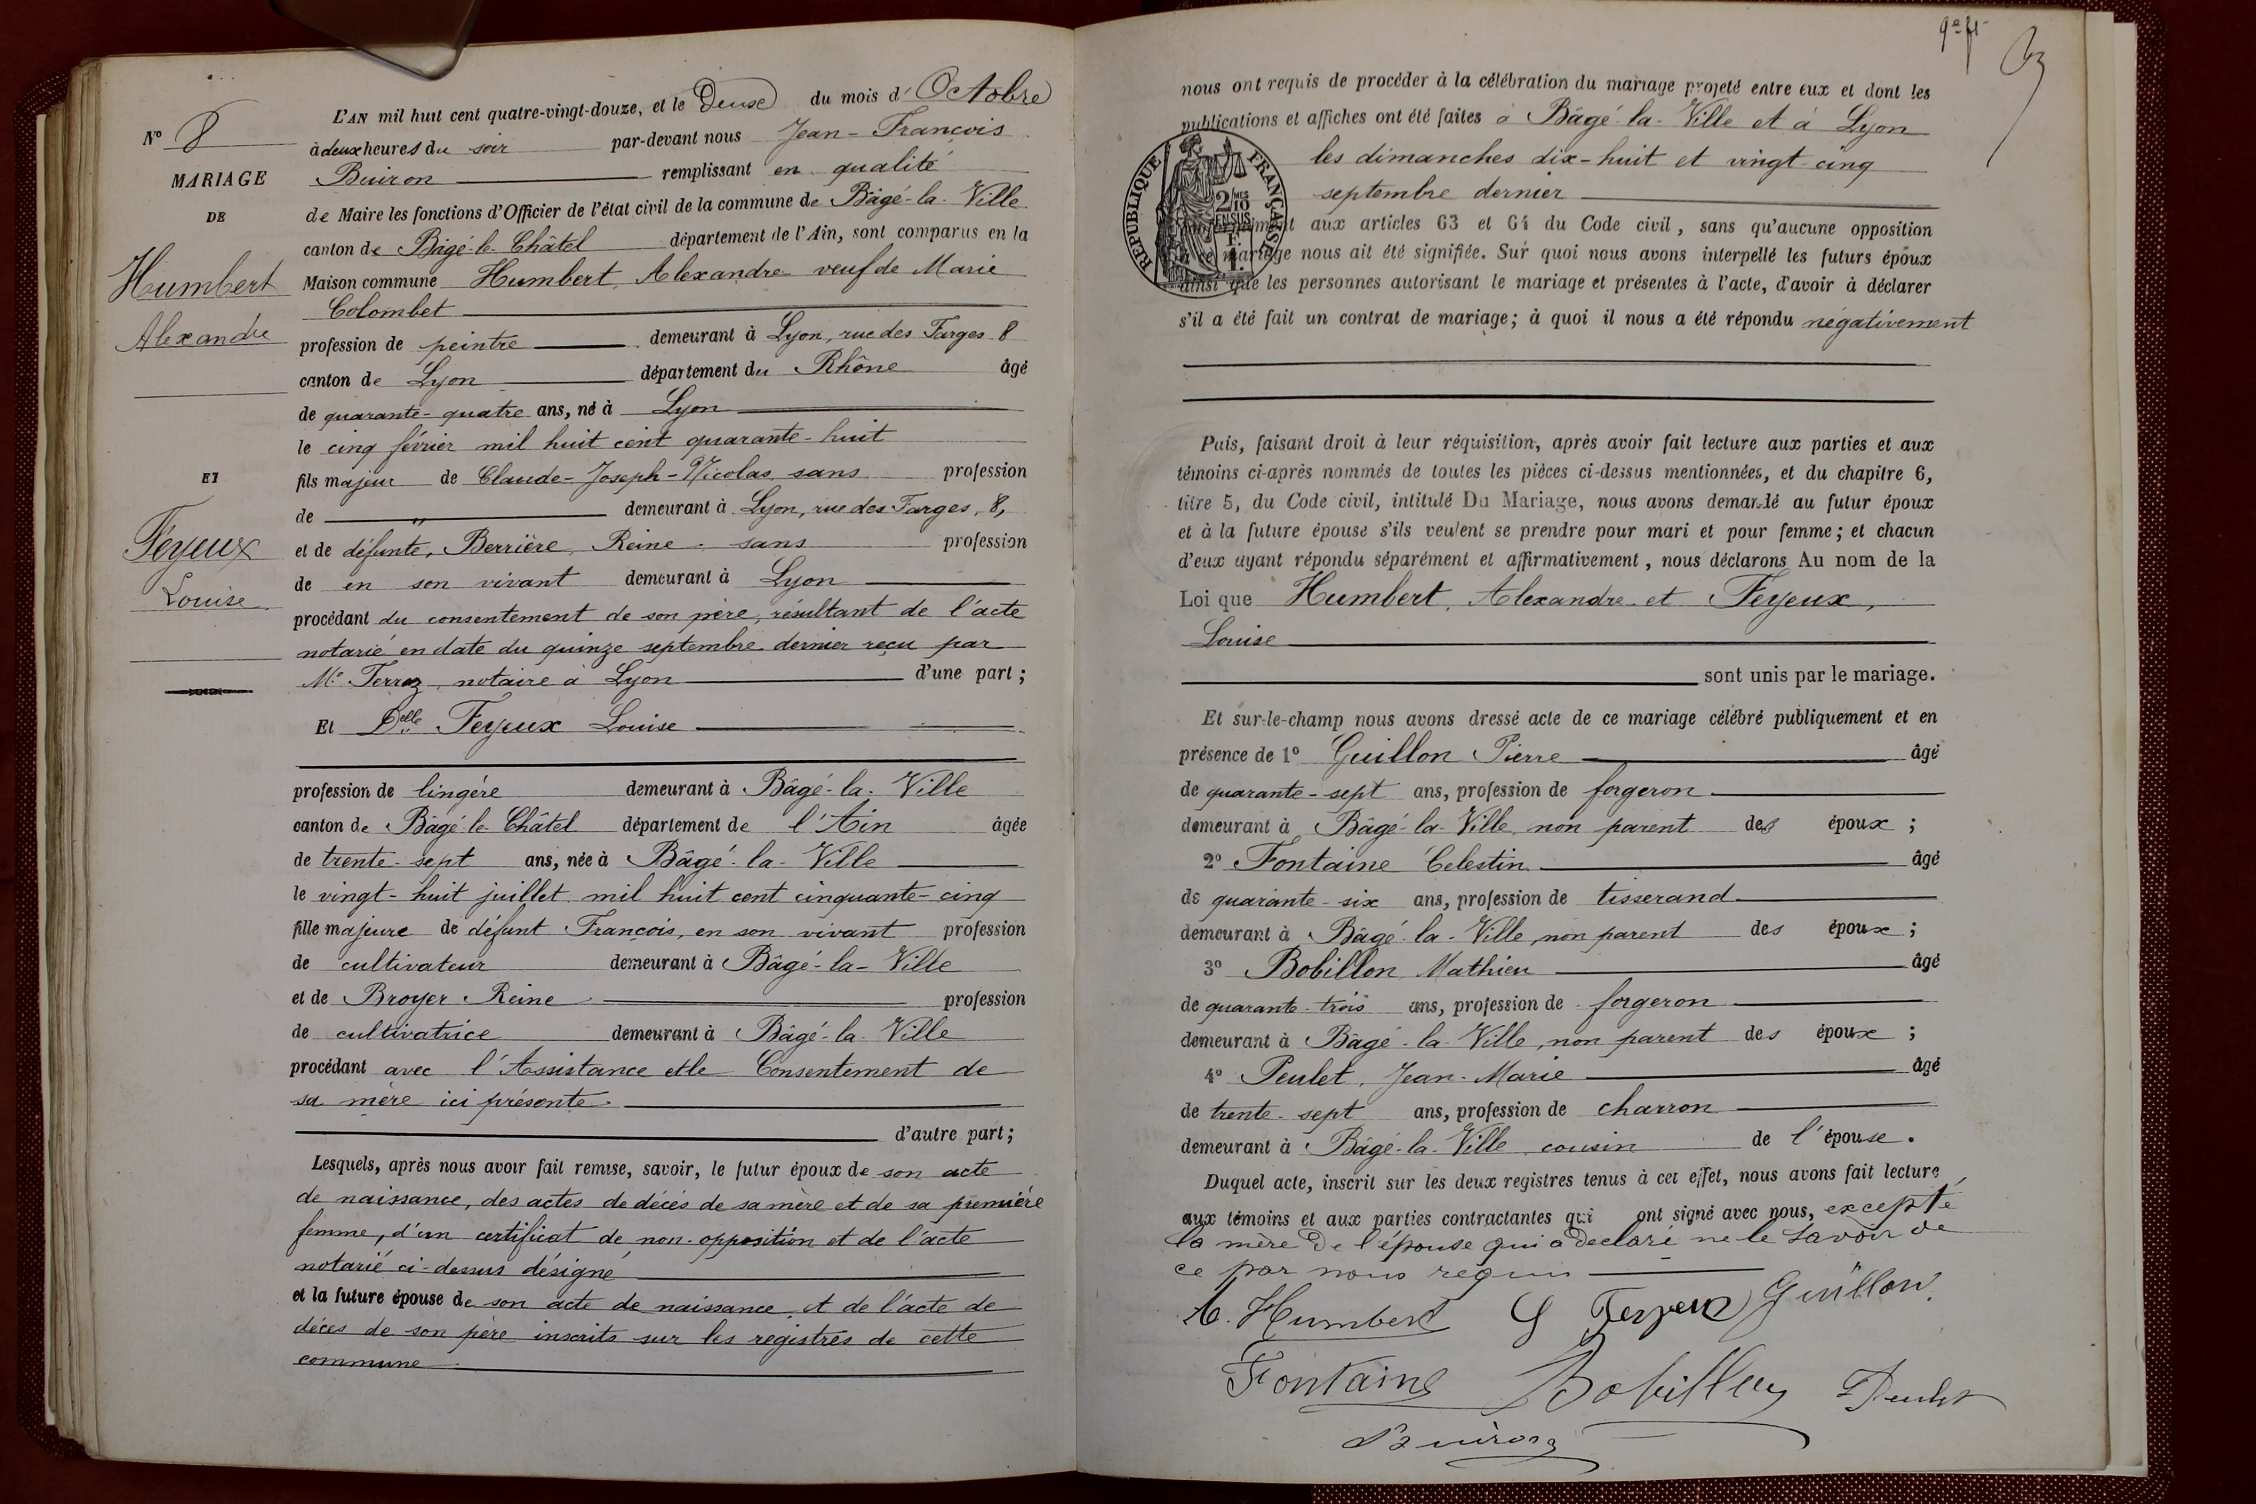 L'AN mil huit cent quatre-vingt-douze, et le Deuse du mois d'Octobre
N° 8
à deux heures du soir par-devant nous Jean-François
MARIAGE
Buiron remplissant en qualité
DE
de Maire les fonctions d'Officier de l'état civil de la commune de Bâgé-la-Ville
canton de Bâgé-le-Châtel département de l'Ain, sont comparus en la
Humbert
Maison commune Humbert, Alexandre veuf de Marie
Colombet
Alexandre
profession de peintre demeurant à Lyon, rue des Farges 8
canton de Lyon département du Rhône âgé
de quarante-quatre ans, né à Lyon
le cinq février mil huit cent quarante-huit
ET
fils majeur de Claude-Joseph-Nicolas sans profession
de " demeurant à Lyon, rue des Farges, 8,
Feyeux
et de défunte, Berrière, Reine sans profession
de en son vivant demeurant à Lyon
Louise
procédant du consentement de son père, résultant de l'acte
notarié en date du quinze septembre dernier reçu par
Me Ferroz, notaire à Lyon d'une part ;
Et Delle Feyeux Louise
profession de lingère demeurant à Bâgé-la-Ville
canton de Bâgé-le-Châtel département de l'Ain âgée
de trente-sept ans, née à Bâgé-la-Ville
le vingt-huit juillet mil huit cent cinquante-cinq
fille majeure de défunt François, en son vivant profession
de cultivateur demeurant à Bâgé-la-Ville
et de Broyer Reine profession
de cultivatrice demeurant à Bâgé-la-Ville
procédant avec l'Assistance et le Consentement de
sa mère ici présente.
d'autre part ;
Lesquels, après nous avoir fait remise, savoir, le futur époux de son acte
de naissance, des actes de décès de sa mère et de sa première
femme, d'un certificat de non-opposition et de l'acte
notarié ci-dessus désigné
et la future épouse de son acte de naissance et de l'acte de
décès de son père inscrits sur les registres de cette
commune
nous ont requis de procéder à la célébration du mariage projeté entre eux et dont les
publications et affiches ont été faites à Bâgé-la-Ville et à Lyon
les dimanches dix-huit et vingt-cinq
septembre dernier
RÉPUBLIQUE FRANÇAISE
2/10 EN SUS
aux articles 63 et 64 du Code civil, sans qu'aucune opposition
mariage nous ait été signifiée. Sur quoi nous avons interpellé les futurs époux
ainsi que les personnes autorisant le mariage et présentes à l'acte, d'avoir à déclarer
s'il a été fait un contrat de mariage ; à quoi il nous a été répondu négativement
Puis, faisant droit à leur réquisition, après avoir fait lecture aux parties et aux
témoins ci-après nommés de toutes les pièces ci-dessus mentionnées, et du chapitre 6,
titre 5, du Code civil, intitulé Du Mariage, nous avons demandé au futur époux
et à la future épouse s'ils veulent se prendre pour mari et pour femme ; et chacun
d'eux ayant répondu séparément et affirmativement, nous déclarons Au nom de la
Loi que Humbert, Alexandre et Feyeux,
Louise
sont unis par le mariage.
Et sur-le-champ nous avons dressé acte de ce mariage célébré publiquement et en
présence de 1° Guillon Pierre âgé
de quarante-sept ans, profession de forgeron
demeurant à Bâgé-la-Ville, non parent des époux ;
2° Fontaine Celestin âgé
de quarante-six ans, profession de tisserand
demeurant à Bâgé-la-Ville, non parent des époux ;
3° Bobillon Mathieu âgé
de quarante-trois ans, profession de forgeron
demeurant à Bâgé-la-Ville, non parent des époux ;
4° Peulet, Jean-Marie âgé
de trente-sept ans, profession de charron
demeurant à Bâgé-la-Ville cousin de l'épouse.
Duquel acte, inscrit sur les deux registres tenus à cet effet, nous avons fait lecture
aux témoins et aux parties contractantes qui ont signé avec nous, excepté
la mère de l'épouse qui a declaré ne le savoir de
ce par nous requis
A. Humbert Feyeux Guillon
Fontaine Bobillon Peulet
Buiron